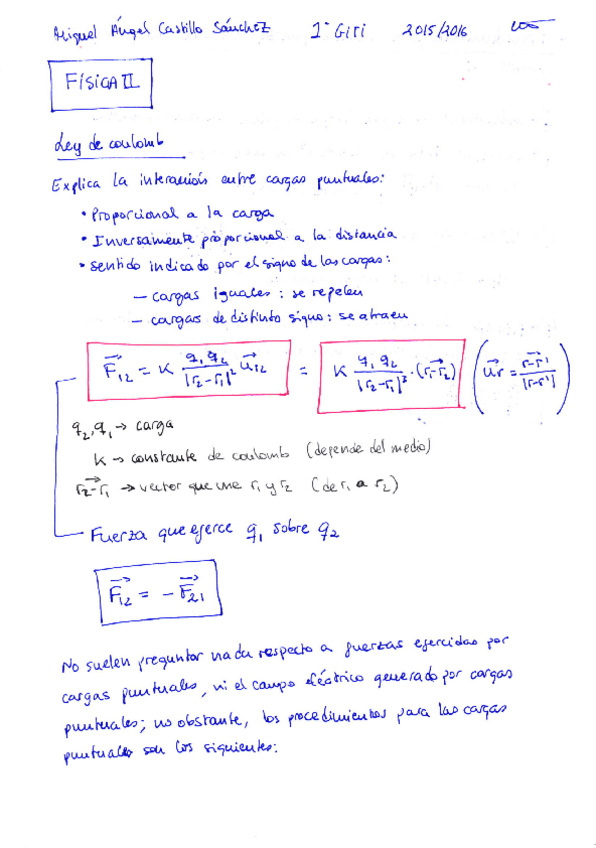 Miguel Ángel Castillo Sánchez 1º GITI 2015/2016
FÍSICA II
Ley de coulomb
Explica la interacción entre cargas puntuales:
• Proporcional a la carga
• Inversamente proporcional a la distancia
• Sentido indicado por el signo de las cargas:
– cargas iguales : se repelen
– cargas de distinto signo: se atraen
F⃗₁₂ = K q₁q₂/|r₂-r₁|² u⃗₁₂ = K q₁q₂/|r₂-r₁|³ · (r₁-r₂) (u⃗r = r-r'/|r-r'|)
q₂,q₁ → carga
K → constante de coulomb (depende del medio)
r₂-r₁ → vector que une r₁ y r₂ (de r₁ a r₂)
Fuerza que ejerce q₁ sobre q₂
F⃗₁₂ = - F⃗₂₁
No suelen preguntar nada respecto a fuerzas ejercidas por
cargas puntuales, ni el campo eléctrico generado por cargas
puntuales; no obstante, los procedimientos para las cargas
puntuales son los siguientes: